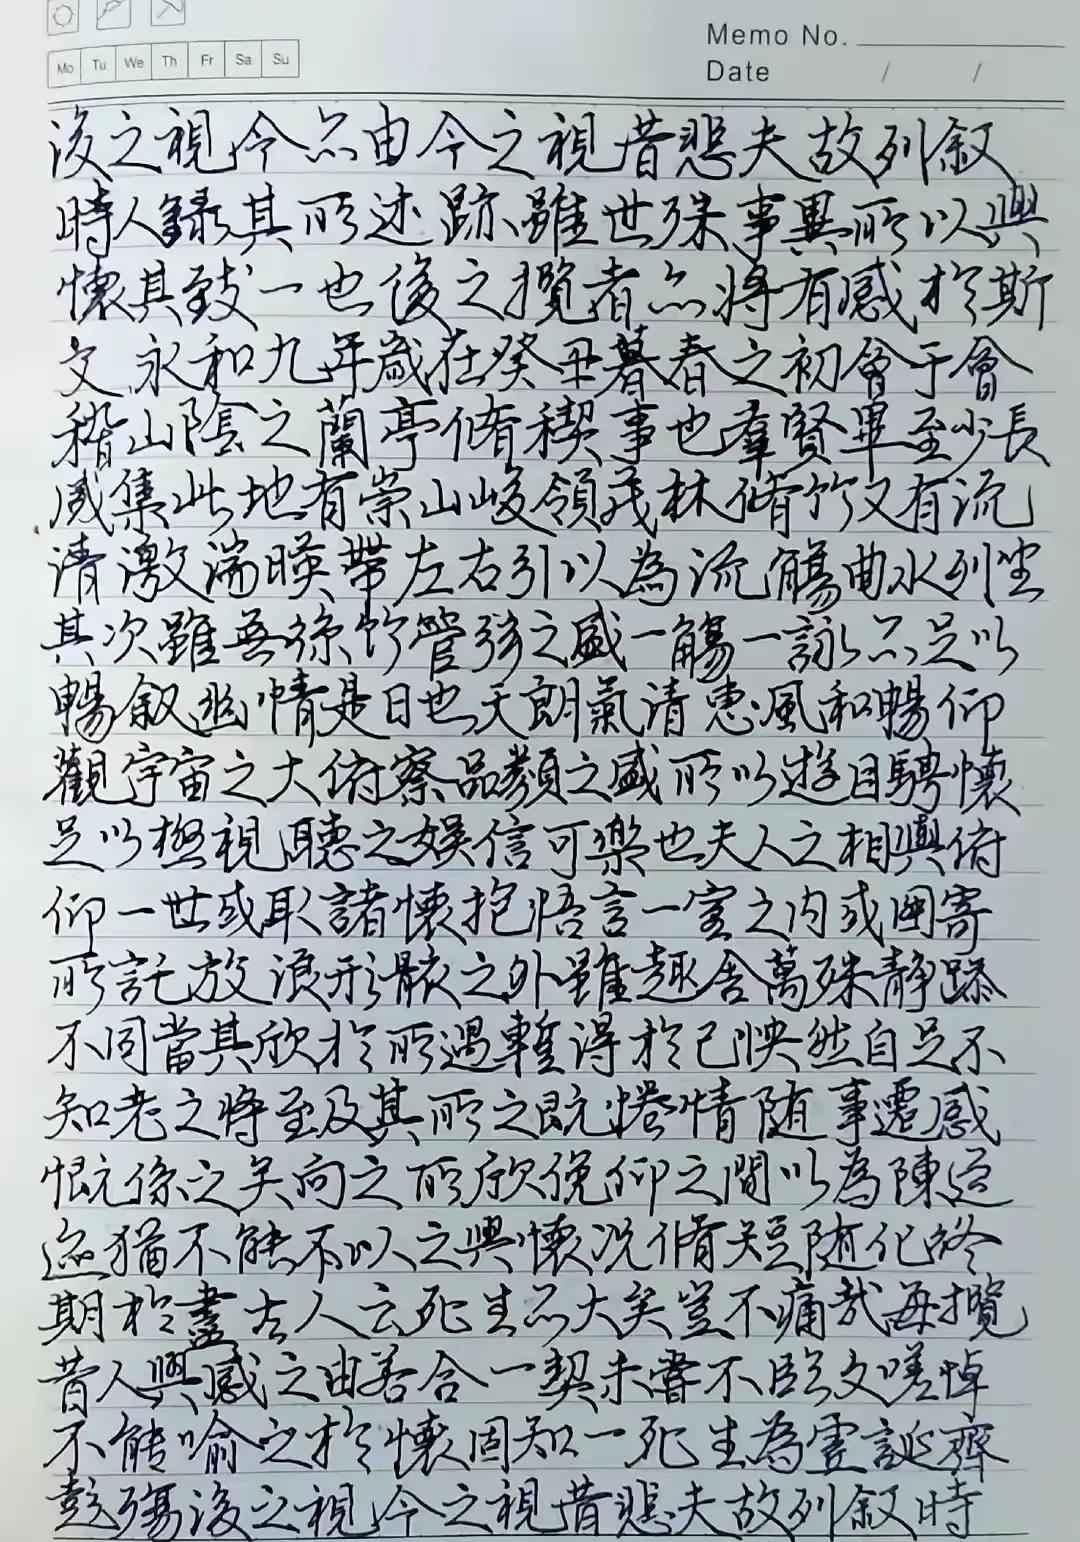 Memo No.
Mo Tu We Th Fr Sa Su
Date / /
後之視今亦由今之視昔悲夫故列叙
時人錄其所述跡雖世殊事異所以興
懷其致一也後之攬者亦將有感於斯
文永和九年歲在癸丑暮春之初會于會
稽山陰之蘭亭脩稧事也羣賢畢至少長
咸集此地有崇山峻領茂林脩竹又有流
清激湍暎帶左右引以為流觴曲水列坐
其次雖無絲竹管弦之盛一觴一詠亦足以
暢叙幽情是日也天朗氣清惠風和暢仰
觀宇宙之大俯察品類之盛所以遊目騁懷
足以極視聽之娛信可樂也夫人之相與俯
仰一世或取諸懷抱悟言一室之內或因寄
所託放浪形骸之外雖趣舍萬殊靜躁
不同當其欣於所遇暫得於己怏然自足不
知老之將至及其所之既惓情随事遷感
慨係之矣向之所欣俛仰之間以為陳迹
猶不能不以之興懷况脩短随化終
期於盡古人云死生亦大矣豈不痛哉每攬
昔人興感之由若合一契未嘗不臨文嗟悼
不能喻之於懷固知一死生為虛誕齊
彭殤後之視今之視昔悲夫故列叙時